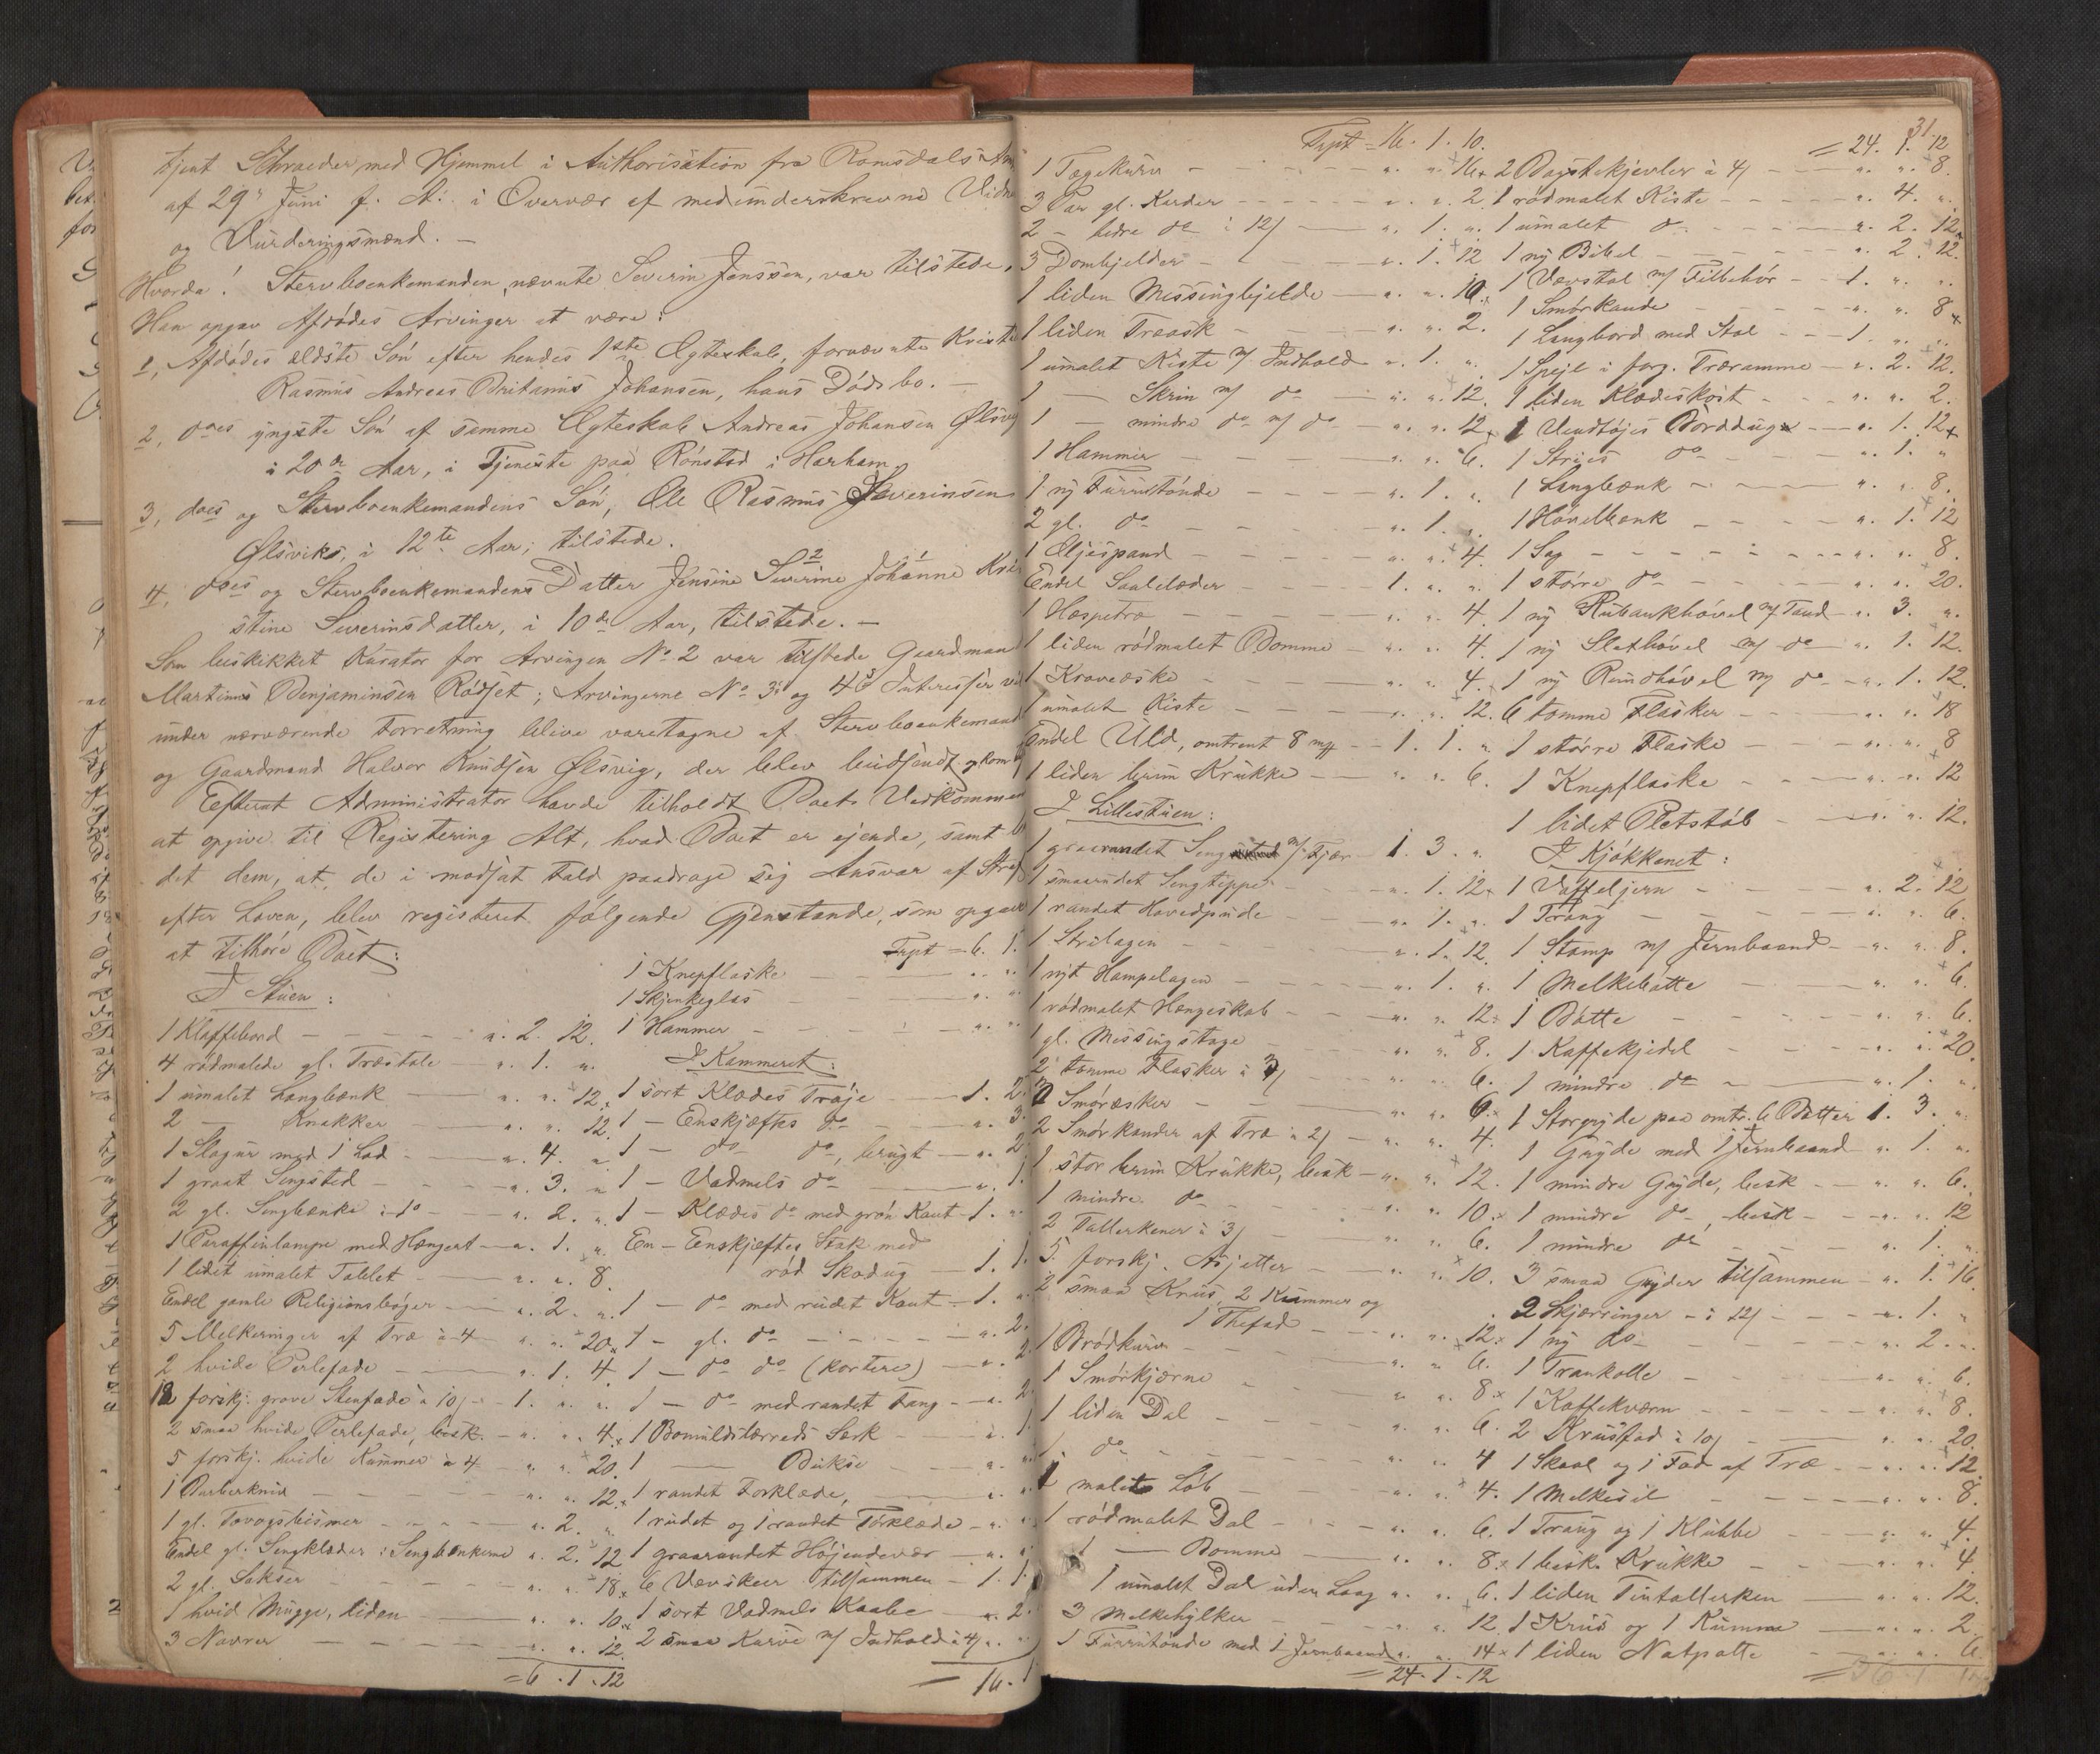 tjent Schraeder med Hjemmel i Authorisation fra Romsdals Am
af 29' Juni f. A: i Overvær af medunderskrevne Vidn
og Vurderingsmænd. —
Hvorda! Stervboenkemanden, nævnte Severin Jenssen, var tilstede,
Han opgav Afdødes Arvinger at være:
1, Afdødes ældste Søn efter hendes 1ste Ægteskab, fornævnte Kriste
Rasmus Andreas Britanus Johansen, hans Dødsbo. —
2, does yngste Søn af samme Ægteskab Andreas Johansen Ølsvig
i 20de Aar, i Tjeneste paa Rønstad i Harham,
3, does og Stervboenkemandens Søn, Ole Rasmus Severinsen
Ølsvik, i 12te Aar, tilstede.
4, does og Stervboenkemandens Datter Jensine Severine Johanne Kri
stine Severinsdatter, i 10de Aar, tilstede. —
Som beskikket Kurator for Arvingen No 2 var tilstede Gaardmand
Martinus Benjaminsen Rødset; Arvingerne No 3 og 4s Interesser vi
under nærværende Forretning blive varetagne af Stervboenkemand
og Gaardmand Halvor Knudsen Ølsvig, der blev budsendt og kom
Efterat Administrator havde tilholdt Boets Vedkommen
at opgive til Registering Alt, hvad Boet er ejende, samt
det dem, at de i modsat Fald paadrage sig Ansvar af Straf
efter Loven, blev registeret følgende Gjenstande, som opgave
at tilhøre Boet:
I Stuen:
1 Klaffebord — " 2. 12.
4 rødmalede gl. Træstole — " 1. "
1 umalet Langbænk — " " 12.
2 — Krakker — " " 12.
1 Slagur med 1 Lod — " 4. "
1 graat Sengsted — " 3. "
2 gl. Sengbænke à 1o — " 2. "
1 Paraffinlampe med Hængert — " 1. "
1 lidet umalet Tablet — " " 8.
Endel gamle Religionsbøger — " 2. "
5 Melkeringer af Træ à 4 — " " 20.
2 hvide Perlefade — " 1. 4.
12 forskj. grove Stenfade à 10/ — 1. " "
2 smaa hvide Perlefade, besk. — " " 4.
5 forskj. hvide Kummer à 4 — " " 20.
1 Barberkniv — " " 12.
1 gl. Tovogsbismer — " 2. "
Endel gl. Sengklæder i Sengbænkerne " 2. 12
2 gl. Sakser — " " 18.
1 hvid Mugge, liden — " " 10.
3 Navrer — " " 12.
= 6. 1. 12
Trpt = 6. 1.
1 Knepflaske — " "
1 Skjenkeglas — " "
1 Hammer — " "
I Kammeret:
1 sort Klædes Trøje — 1. 2.
1 — Enskjæftes do — " 3.
1 — do do, brugt — " 2
1 — Vadmels do — " 1.
1 — Klædes do med grøn Kant 1. "
En — Enskjæftes Stak med
rød Skodug — 1. 1.
1 — do med rudet Kant — 1. "
1 — gl. do — " 2.
1 — do do (kortere) — " 2.
1 — do med randet Fang — " 2.
1 Bomuldslærreds Særk — " 1.
1 — Bukse — " "
1 randet Forklæde, — " "
1 rudet og 1 randet Forklæde — " "
1 graarandet Højendevær — " "
6 Vævskeer tilsammen — 1. 1.
1 sort Vadmels Kaabe — " 2.
2 smaa Kurve m/ Indhold à 4/ " "
= 16. 1
Trpt = 16. 1. 10.
1 Tægekurv — " " 16.
3 Par gl. Karder — " " 2.
2 — bedre do à 12/ — " 1. "
3 Dombjelder — " 1. 12
1 liden Messingbjelde — " " 10.
1 liden Træask — " " 2.
1 umalet Kiste m/ Indhold " 1. "
1 — Skrin m/ do — " " 12.
1 — mindre do m/ do — " " 12.
1 Hammer — " " 6.
1 ny Furutønde — " 1. "
2 gl. do — " 1. "
1 Oljespand — " " 4.
Endel Saalelæder — 1. " "
1 Hespetræ — " " 4.
1 liden rødmalet Bomme — " " 4.
1 Kraveæske — " " 4.
1 umalet Kiste — " " 12.
Endel Uld, omtrent 8 m — 1. 1. "
1 liden brun Krukke — " " 6.
I Lillestuen:
1 graarandet Seng m/ Fjær 1. 3. "
1 smaarudet Sengteppe — " 1. 12
1 randet Hovedpude — " 1. "
1 Strilagen — " 1. 12.
1 nyt Hampelagen — " 1. "
1 rødmalet Hængeskab — " " 12.
1 gl. Messingstage — " " 8.
2 tomme Flasker à 3/ — " " 6.
2 Smøræsker — " " 6.
2 Smørkander af Træ à 2/ — " " 4.
1 stor brun Krukke, besk — " " 12.
1 mindre do — " " 10.
2 Tallerkener à 3/ — " " 6.
5 forskj. Asjetter — " " 10.
2 smaa Krus, 2 Kummer og
1 Thefad — " " 12.
1 Brødkurv — " " 6.
1 Smørkjærne — " " 8.
1 liden Dal — " " 6.
1 do — " " 4
1 malet Løb — " " 4.
1 rødmalet Dal — " " 6.
1 — Bomme — " " 8.
1 umalet Dal uden Laag " " 6.
3 Melkehylker — " " 12.
1 Furutønde med 1 Jernbaand " " 14
= 24. 1. 12
31.
= 24. 1. 12
2 Bagstekjevler à 4/ — " " 8.
1 rødmalet Kiste — " 4. "
1 umalet do — " 2. 12.
1 ny Bibel — " 2. 12.
1 Vævstol m/ Tilbehør — 1. " "
1 Smørkande — " " 8
1 Langbord med Stol — 1. " "
1 Spejl i forg. Træramme — " 2. 12.
1 liden Klædeskost — " " 2.
1 Vendtøjes Borddug — " 1. 12
1 Stries do — " 1. "
1 Langbænk — " " 8.
1 Høvelbænk — " 1. 12
1 Sag — " " 8.
1 større do — " " 20.
1 ny Rubankhøvel m/ Tand " 3. "
1 ny Slethøvel m/ do " 1. 12.
1 ny Rundhøvel m/ do — " 1. 12.
6 tomme Flasker — " " 18
1 større Flaske — " " 8
1 Knepflaske — " " 12
1 lidet Pletstøb — " " 12.
I Kjøkkenet:
1 Vaffeljern — " 2. 12
1 Traug — " " 6.
1 Stamp m/ Jernbaand — " " 8.
1 Melkebøtte — " " 6.
1 Bøtte — " " 6.
1 Kaffekjedel — " " 20.
1 mindre do — " 1. "
1 Storgryde paa omtr. 6 Bøtter 1. 3. "
1 Gryde med 1 Jernbaand " 1. "
1 mindre Gryde, besk — " " 6.
1 mindre do, besk — " " 12
1 mindre do — " 1. "
3 smaa Gryder tilsammen — " 1. 16.
2 Skjærringer à 12/ — " 1. "
1 ny do — " 2. "
1 Trankolle — " " 6.
1 Kaffekværn — " " 8.
2 Krusfad à 10/ — " " 20.
1 Skaal og 1 Fad af Træ — " " 12.
1 Melkesil — " " 8.
1 Traug og 1 Klubbe — " " 4.
1 besk. Krukke — " " 4
1 liden Tintallerken — " " 12.
1 Krus og 1 Kumme — " " 2.
1 liden Natpotte — " " 6.